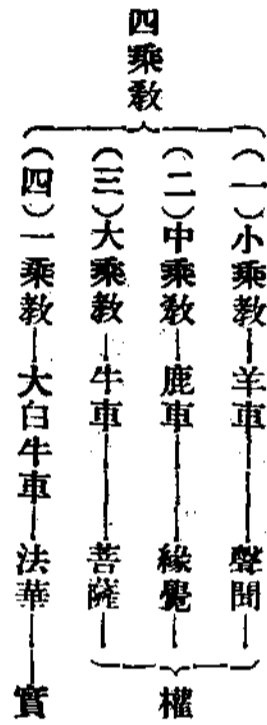 四乘敎
(一)小乘敎—羊車—聲聞
(二)中乘敎—鹿車—緣覺
(三)大乘敎—牛車—菩薩
權
(四)一乘敎—大白牛車—法華—實